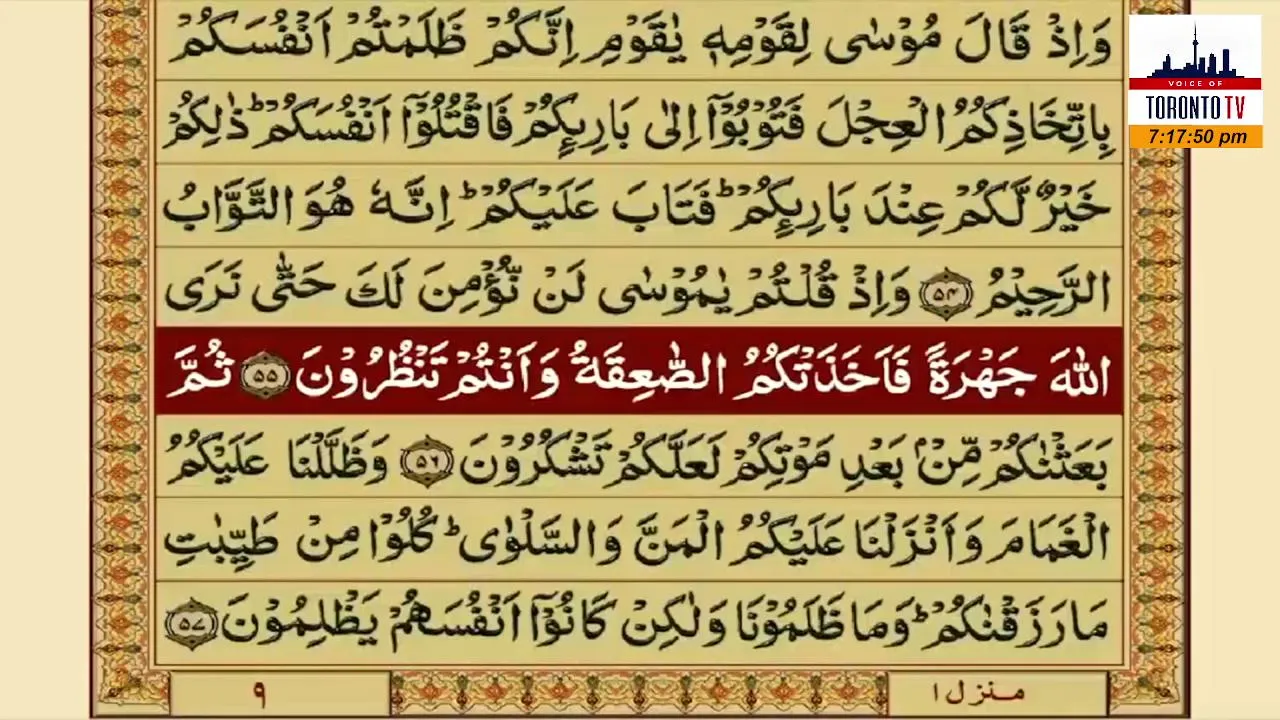 وَاِذْ قَالَ مُوْسٰى لِقَوْمِهٖ يٰقَوْمِ اِنَّكُمْ ظَلَمْتُمْ اَنْفُسَكُمْ
بِاتِّخَاذِكُمُ الْعِجْلَ فَتُوْبُوْٓا اِلٰى بَارِىِٕكُمْ فَاقْتُلُوْٓا اَنْفُسَكُمْ ؕ ذٰلِكُمْ
خَيْرٌ لَّكُمْ عِنْدَ بَارِىِٕكُمْ ؕ فَتَابَ عَلَيْكُمْ ؕ اِنَّهٗ هُوَ التَّوَّابُ
الرَّحِيْمُ ۵۴ وَاِذْ قُلْتُمْ يٰمُوْسٰى لَنْ نُّؤْمِنَ لَكَ حَتّٰى نَرَى
اللّٰهَ جَهْرَةً فَاَخَذَتْكُمُ الصّٰعِقَةُ وَاَنْتُمْ تَنْظُرُوْنَ ۵۵ ثُمَّ
بَعَثْنٰكُمْ مِّنْۢ بَعْدِ مَوْتِكُمْ لَعَلَّكُمْ تَشْكُرُوْنَ ۵۶ وَظَلَّلْنَا عَلَيْكُمُ
الْغَمَامَ وَاَنْزَلْنَا عَلَيْكُمُ الْمَنَّ وَالسَّلْوٰى ؕ كُلُوْا مِنْ طَيِّبٰتِ
مَا رَزَقْنٰكُمْ ؕ وَمَا ظَلَمُوْنَا وَلٰكِنْ كَانُوْٓا اَنْفُسَهُمْ يَظْلِمُوْنَ ۵۷
منزل ۱
۹
VOICE OF
TORONTO TV
7:17:50 pm